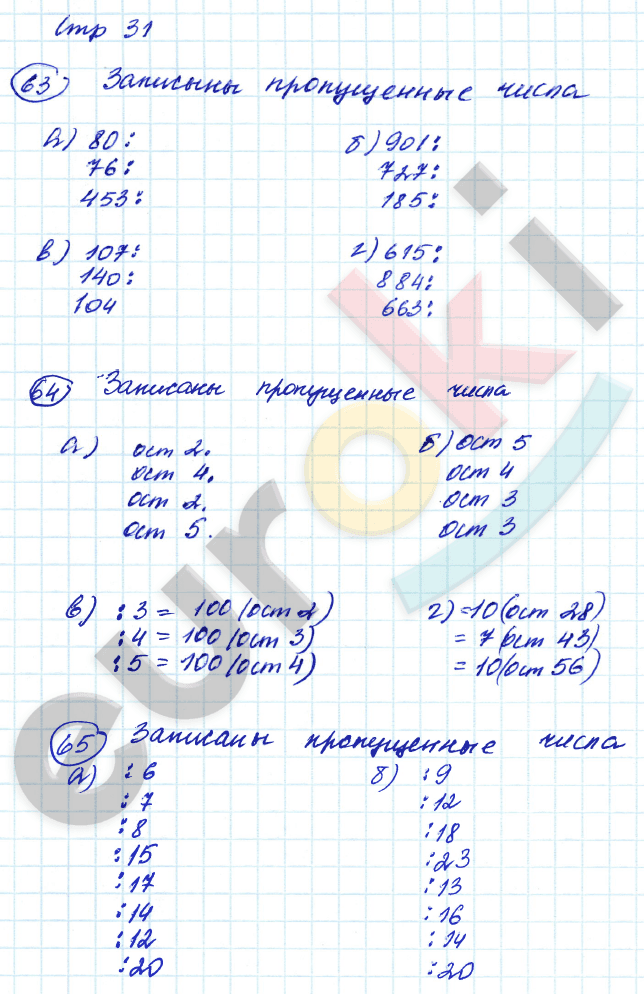 Стр 31
63 Записыны пропущенные числа
а) 80:
76:
453:
б) 901:
727:
185:
в) 107:
140:
104
г) 615:
884:
663:
64 Записаны пропущенные числа
а) ост 2.
ост 4.
ост 2.
ост 5.
б) ост 5
ост 4
ост 3
ост 3
в) : 3 = 100 (ост 2)
: 4 = 100 (ост 3)
: 5 = 100 (ост 4)
г) =10 (ост 28)
= 7 (ост 43)
= 10 (ост 56)
65 Записаны пропущенные числа
а) : 6
: 7
: 8
:15
:17
:14
:12
:20
б) :9
:12
:18
:23
:13
:16
:14
:20
euroki